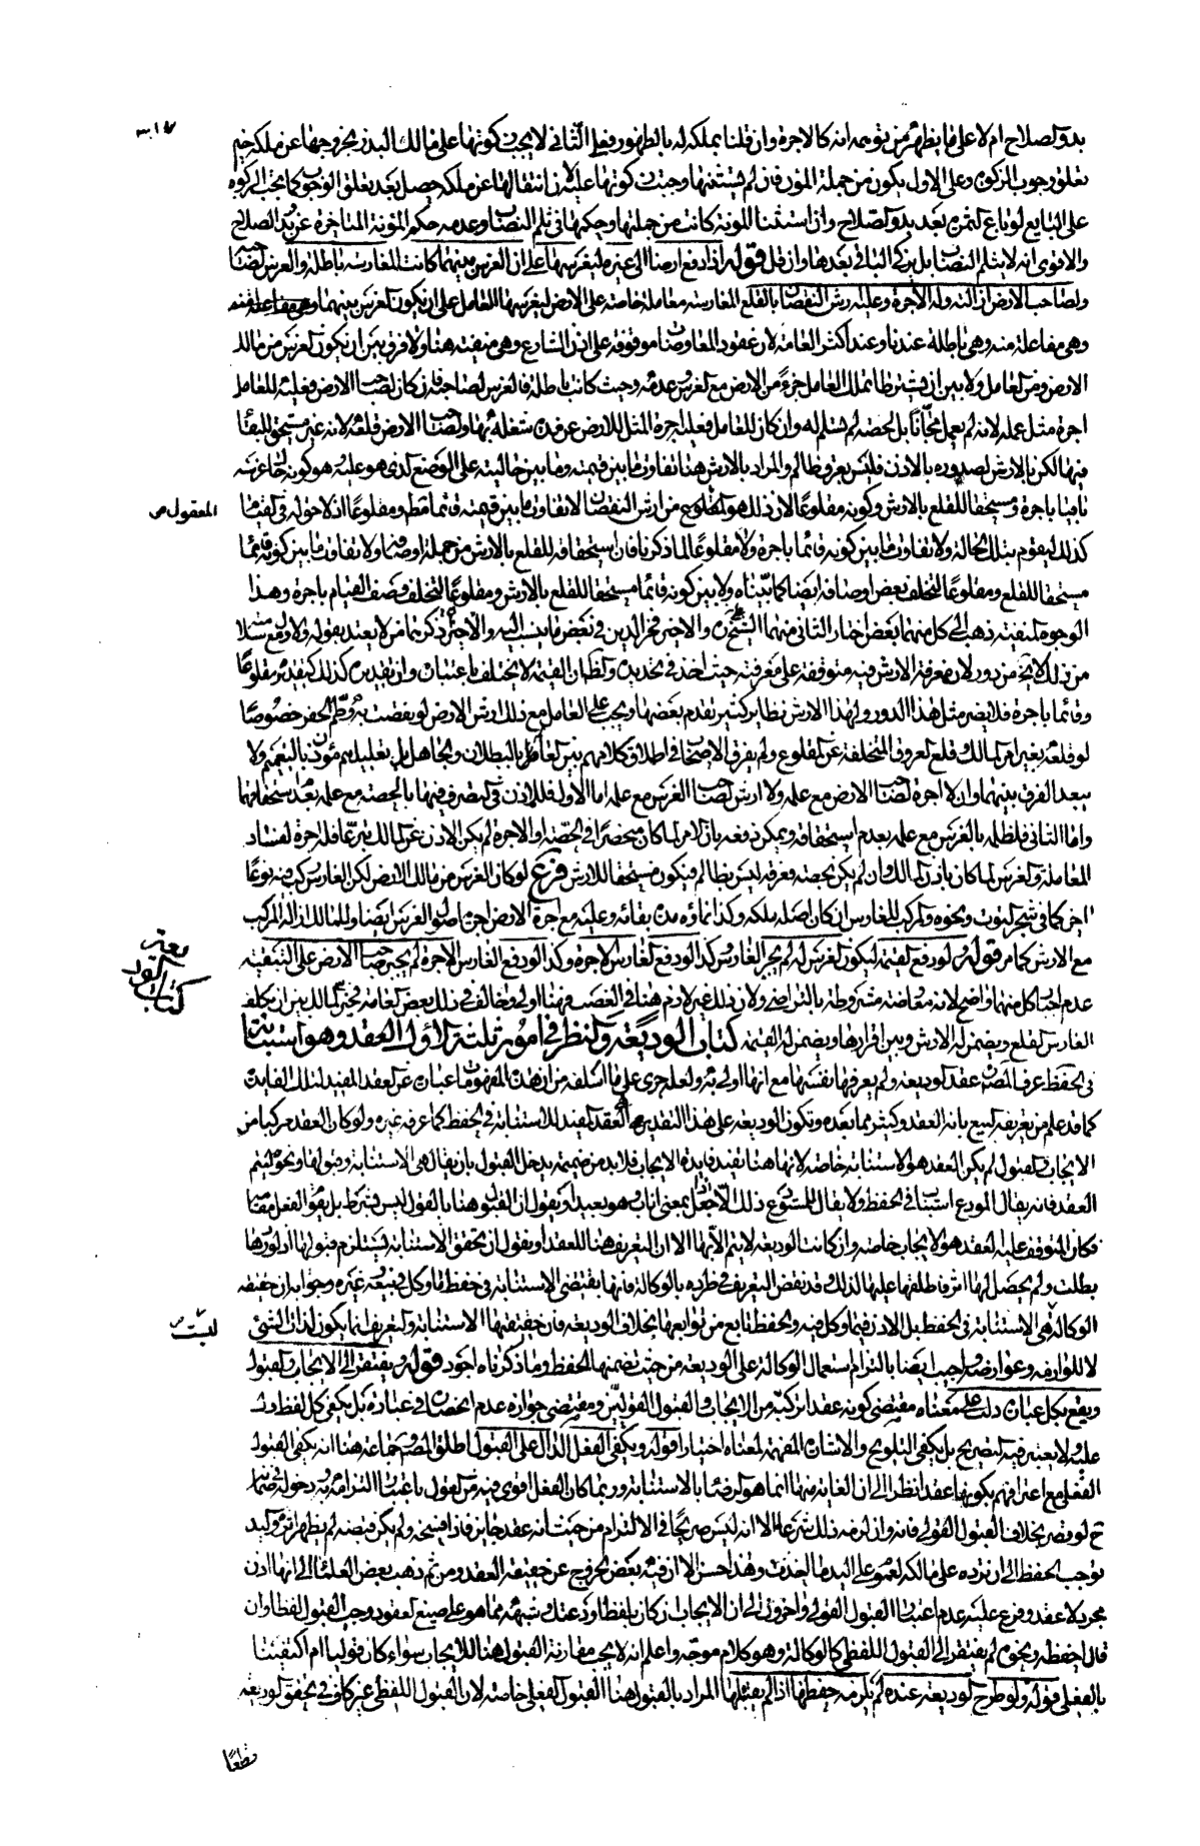 ٣١٧
بدو الصلاح ام لا على ما يظهر من توهمه انه كالاجرة وان قلنا بملكه له بالظهور وفيه الثاني لا يجب كونها على مالك البذر لخروجها عن ملكه حين
تعلق وجوب الزكوة وعلى الاول يكون من جملة المؤن فان لم نستثنها وجبت زكوتها عليه لان انتقالها عن ملكه حصل بعد تعلق الوجوب كما يجب الزكوة
على البايع لو باع الثمرة بعد بدو الصلاح وان استثنينا المؤنة كانت من جملتها وحكمها في ثلم النصاب وعدمه حكم المؤنة المتاخرة عن بدو الصلاح
والاقوى انه لا ينثلم النصاب بل يزكى الباقي بعدها وان قل قوله اذا دفع ارضا الى غيره ليغرسها على ان الغرس بينهما كانت المغارسة باطلة والغرس لصاحبه
ولصاحب الارض ازالته وله الاجرة وعليه ارش النقصان بالقلع المغارسة معاملة خاصة على الارض ليغرسها العامل على ان يكون الغرس بينهما
وهي مفاعلة منه وهي باطلة عندنا وعند اكثر العامة لان عقود المعاوضات موقوفة على اذن الشارع وهي منتفية هنا ولا فرق بين ان يكون الغرس من مالك
الارض ومن العامل ولا بين ان يشترطا تملك العامل جزءً من الارض مع الغرس وعدمه وحيث كانت باطلة فالغرس لصاحبه فان كان لصاحب الارض فعليه للعامل
اجرة مثل عمله لانه لم يعمل مجانًا بل بحصة لم تسلم له وان كان للعامل فعليه اجرة المثل للارض عن مدة شغله بها ولصاحب الارض قلعه لانه غير مستحق للبقاء
فيها لكن بالارش لصدوره بالاذن فليس بعرق ظالم والمراد بالارش هنا تفاوت ما بين قيمته وما بين حاليته على الوضع الذي هو عليه وهو كونه حال غرسه
ثابتا باجرة ومستحقا للقلع بالارش وكونه مقلوعًا لان ذلك هو المعقول من ارش النقصان لا تفاوت ما بين قيمته قائما مطلقا ومقلوعًا اذ لا حق له في القيام
كذلك ليقوم بتلك الحالة ولا تفاوت ما بين كونه قائما باجرة ولا مقلوعًا لما ذكرنا فان استحقاقه للقلع بالارش من جملة اوصافه ولا تفاوت ما بين كونه قائما
مستحقا للقلع ومقلوعًا لتخلف بعض اوصافه ايضا كما بيّناه ولا بين كونه قائما مستحقا للقلع بالارش ومقلوعًا لتخلف وصف القيام باجرة وهذا
الوجوه المنفية ذهب الى كل منها بعض اختار الثاني منها الشيخ علي والاخير فخر الدين في بعض ما ينسب اليه والاخير ذكرها من لا يعتد بقوله
من ذلك لا يخ من دور لان معرفة الارش فيه متوقفة على معرفته حيث اخذ في تحديده والظاهر ان القيمة لا يختلف باعتباره وان تقديره كذلك كتقديره مقلوعًا
وقائما باجرة فلا يضر مثل هذا الدور ولهذا الارش نظاير كثيرة تقدم بعضها ويجب على العامل مع ذلك ارش الارض لو نقصت به وطم الحفر خصوصًا
لو قلعه بغير امر المالك وقلع العروق المتخلفة عن المقلوع ولم يفرق الاصحاب في اطلاق كلامهم بين العالم بالبطلان والجاهل بل تعليلهم مؤذن بالتعميم ولا
يبعد الفرق بينهما وان لا اجرة لصاحب الارض مع علمه ولا ارش لصاحب الغرس مع علمه اما الاول فللاذن في التصرف فيها بالحصة مع علمه بعدم استحقاقها
واما الثاني فلظلمه بالغرس مع علمه بعدم استحقاقه ويمكن دفعه بان الامر لما كان منحصرًا في الحصة او الاجرة لم يكن الاذن من المالك تبرعًا فله الاجرة لفساد
المعاملة والغرس لما كان باذن المالك وان لم يكن بحصته فعرقه ليس بظالم فيكون مستحقا للارش فرع لو كان الغرس من مالك الارض لكن الغارس ركب فيه نوعًا
اخر كما في شجر التوت ونحوه فالمركب للغارس ان كان اصله ملكه وكذا نماؤه مدة بقائه وعليه مع اجرة الارض اجرة اصول الغرس ايضا وللمالك ازالة المركب
مع الارش كما مر قوله ولو دفع القيمة ليكون الغرس له لم يجبر الغارس وكذا لو دفع الغارس الاجرة لم يجبر صاحب الارض على التبقية
عدم اجبار كل منهما واضح لانه معاوضة مشروطة بالتراضي ولان ذلك غير لازم هنا في الغصب فهنا اولى وخالف في ذلك بعض العامة فخير المالك بين ان يكلف
الغارس القلع ويضمن له الارش وبين اقرارها ويضمن له القيمة كتاب الوديعة والنظر في امور ثلثة الاول العقد وهو استنابة
في الحفظ عرف المصنف عقد الوديعة ولم يعرفها نفسها مع انها اولى به ولعله جرى على ما اسلفه من ان هذه المفهومات عبارة عن العقد المفيد لتلك الفايدة
كما قد علم من تعريفه البيع بانه العقد وكثير مما بعده وتكون الوديعة على هذا التقدير هي العقد المفيد للاستنابة في الحفظ كما عرفه غيره ولو كان العقد مركبا من
الايجاب والقبول لم يكن العقد هو الاستنابة خاصة لانها هنا تفيد فايدة الايجاب فلا بد من ضميمة يدخل القبول بان يقال هي الاستنابة وقبولها ونحوه ليتم
العقد فانه يقال المودع استناب في الحفظ ولا يقال للمستودع ذلك الا ان يجعل بمعنى اناب وهو بعيد او يقول ان القبول هنا بالقول ليس بشرط بل يقوم الفعل مقامه
فكان المتوقف عليه العقد هو الايجاب خاصة وان كانت الوديعة لا يتم الا بهما الا ان التعريف هنا للعقد او يقول ان تحقق الاستنابة يستلزم قبولها اذ لو ردها
بطلت ولم يحصل لها اثر فاطلقها عليها لذلك وقد نقض التعريف في طرده بالوكالة فانها يقتضي الاستنابة في حفظ ما وكل في بيعه وغيره وجوابه ان حقيقة
الوكالة ليست هي الاستنابة في الحفظ بل الاذن فيما وكل فيه والحفظ تابع من توابعها بخلاف الوديعة فان حقيقتها الاستنابة والتعريف انما يكون لذات الشئ
لا للوازمه وعوارضه واجيب ايضا بالتزام استعمال الوكالة على الوديعة من حيث تضمنها الحفظ وما ذكرناه اجود قوله ويفتقر الى الايجاب والقبول
ويقع بكل عبارة دلت على معناه مقتضى كونه عقدا تركبه من الايجاب والقبول القوليّين ومقتضى جوازه عدم انحصاره في عبارة بل يكفي كل لفظ دل
عليه ولا يعتبر فيه التصريح بل يكفي التلويح والاشارة المفهمة لمعناه اختيارا قوله ويكفي الفعل الدال على القبول اطلق المصنف وجماعة هنا انه يكفي القبول
الفعلي مع اعترافهم بكونها عقدا نظرا الى ان الغاية منها انما هو الرضا بالاستنابة وربما كان الفعل اقوى فيه من القول باعتبار التزامه به ودخوله في ضمانه
ح لو قصر بخلاف القبول القولي فانه وان لزمه ذلك شرعا الا انه ليس صريحا في الالتزام من حيث انه عقد جايز فاذا فسخه ولم يكن قبضه لم يظهر اثره واليد
توجب الحفظ الى ان ترده على مالكه لعموم على اليد ما اخذت وهذا حسن الا ان فيه بعض الخروج عن حقيقة العقد ومن ثم ذهب بعض العلماء الى انها اذن
مجرد لا عقد وفرع عليه عدم اعتبار القبول القولي واخرون الى ان الايجاب ان كان بلفظ اودعتك وشبهه مما هو على صيغ العقود وجب القبول لفظا وان
قال احفظه ونحوه لم يفتقر الى القبول اللفظي كالوكالة وهو كلام موجه واعلم انه لا يجب مقارنة القبول هنا للايجاب سواء كان قوليا ام اكتفينا
بالفعلي قوله ولو طرح الوديعة عنده لم يلزمه حفظها اذا لم يقبلها المراد بالقبول هنا القبول الفعلي خاصة لان القبول اللفظي غير كاف في تحقق الوديعة
المعقول ص
كتاب الوديعة
ليست ص
قطعًا